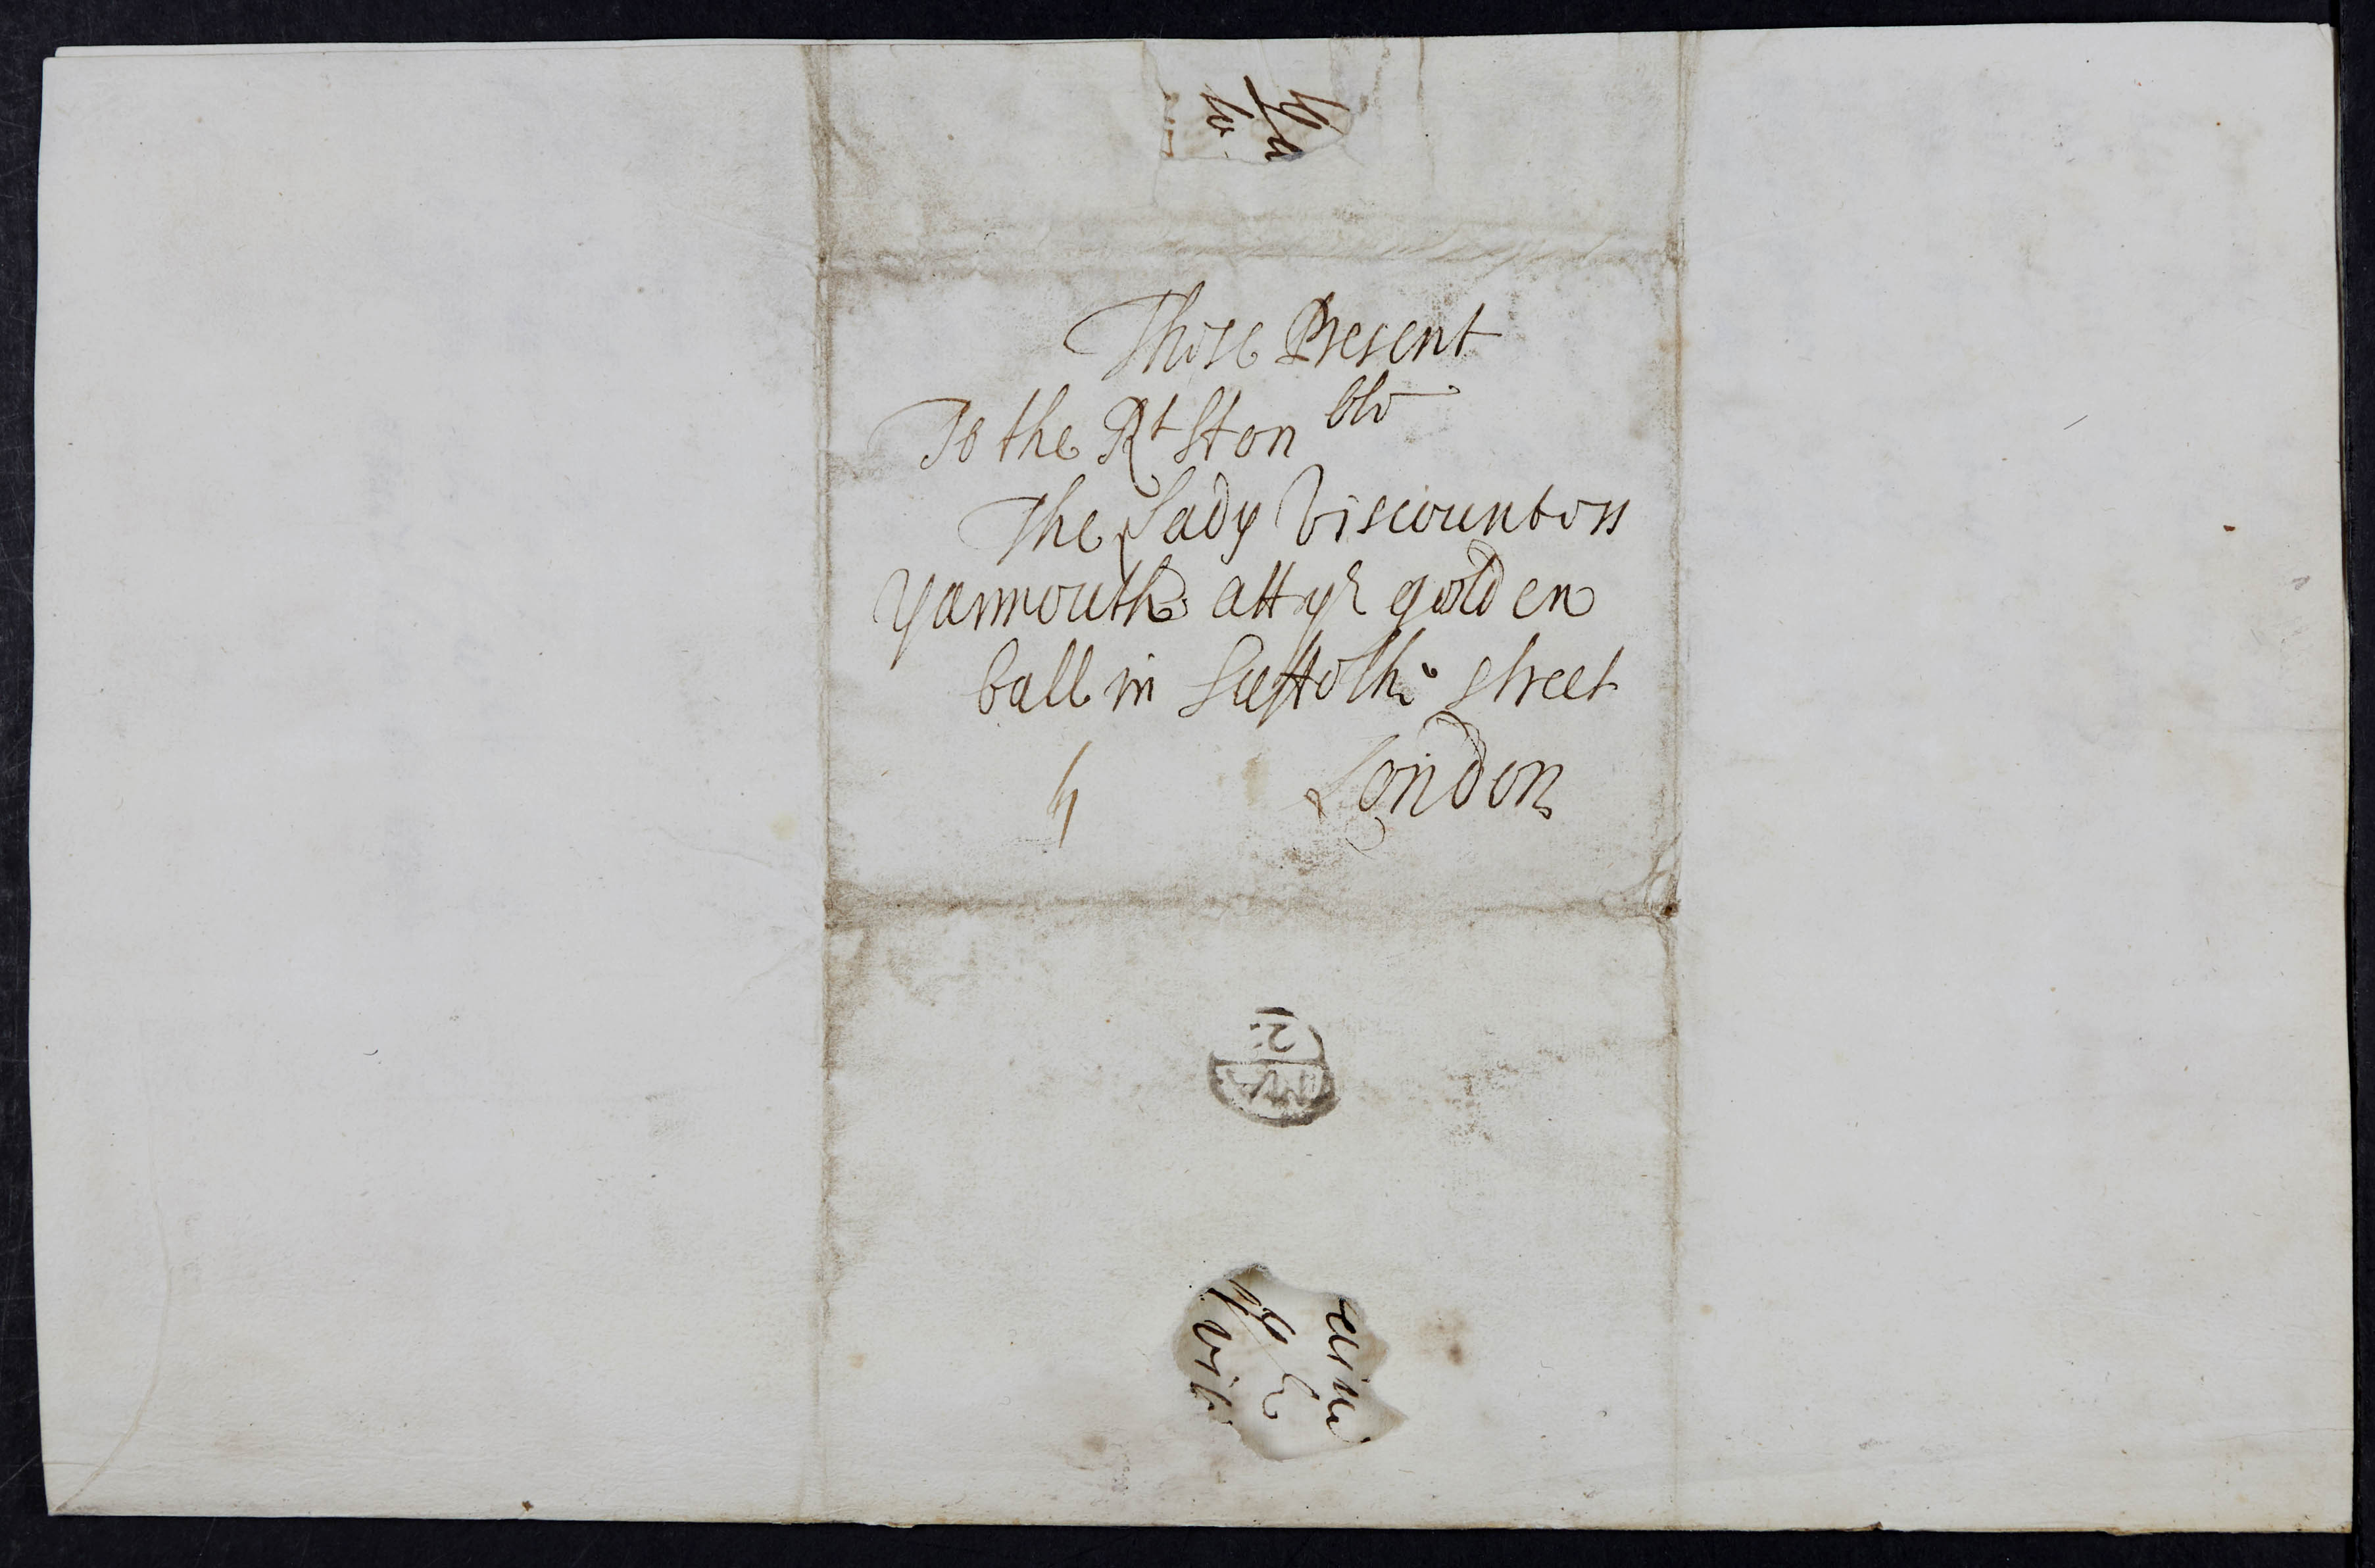 These Present
To the Rt Hon ble
The Lady Viscountess
Yarmouth att ye golden
ball in Suffolke street
London
4
MA
2